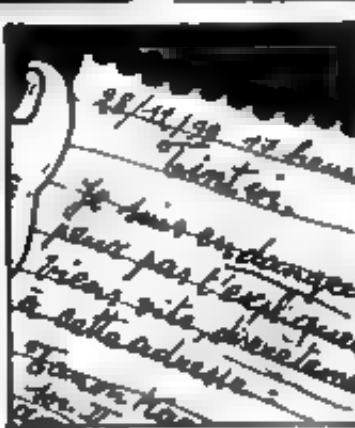 28/11/98 17 heure
Tintin
Je suis en danger
peux pas t'expliquer
viens vite, discrèteme
à cette adresse: